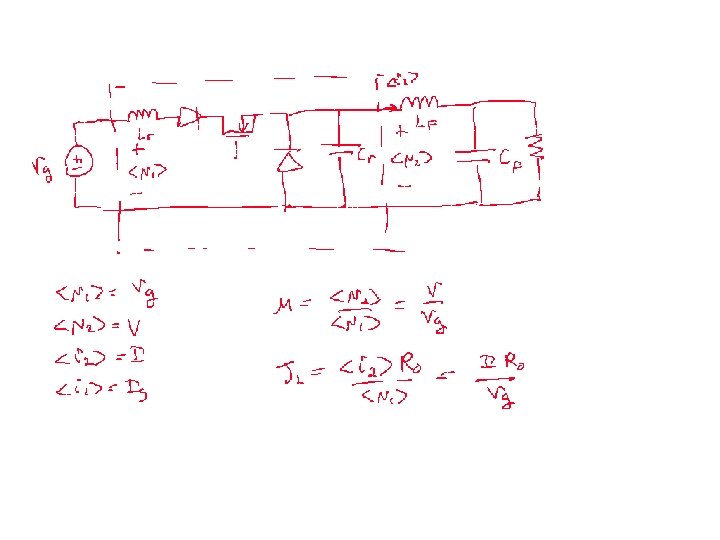 <i₂>
Vg
Lr
+
<v₁>
−
Cr
LF
+
<v₂>
−
CF
<v₁> = Vg
<v₂> = V
<i₂> = I
<i₁> = Ig
M = <v₂> / <v₁> = V / Vg
J₂ = <i₂> R₀ / <v₁> = I R₀ / Vg